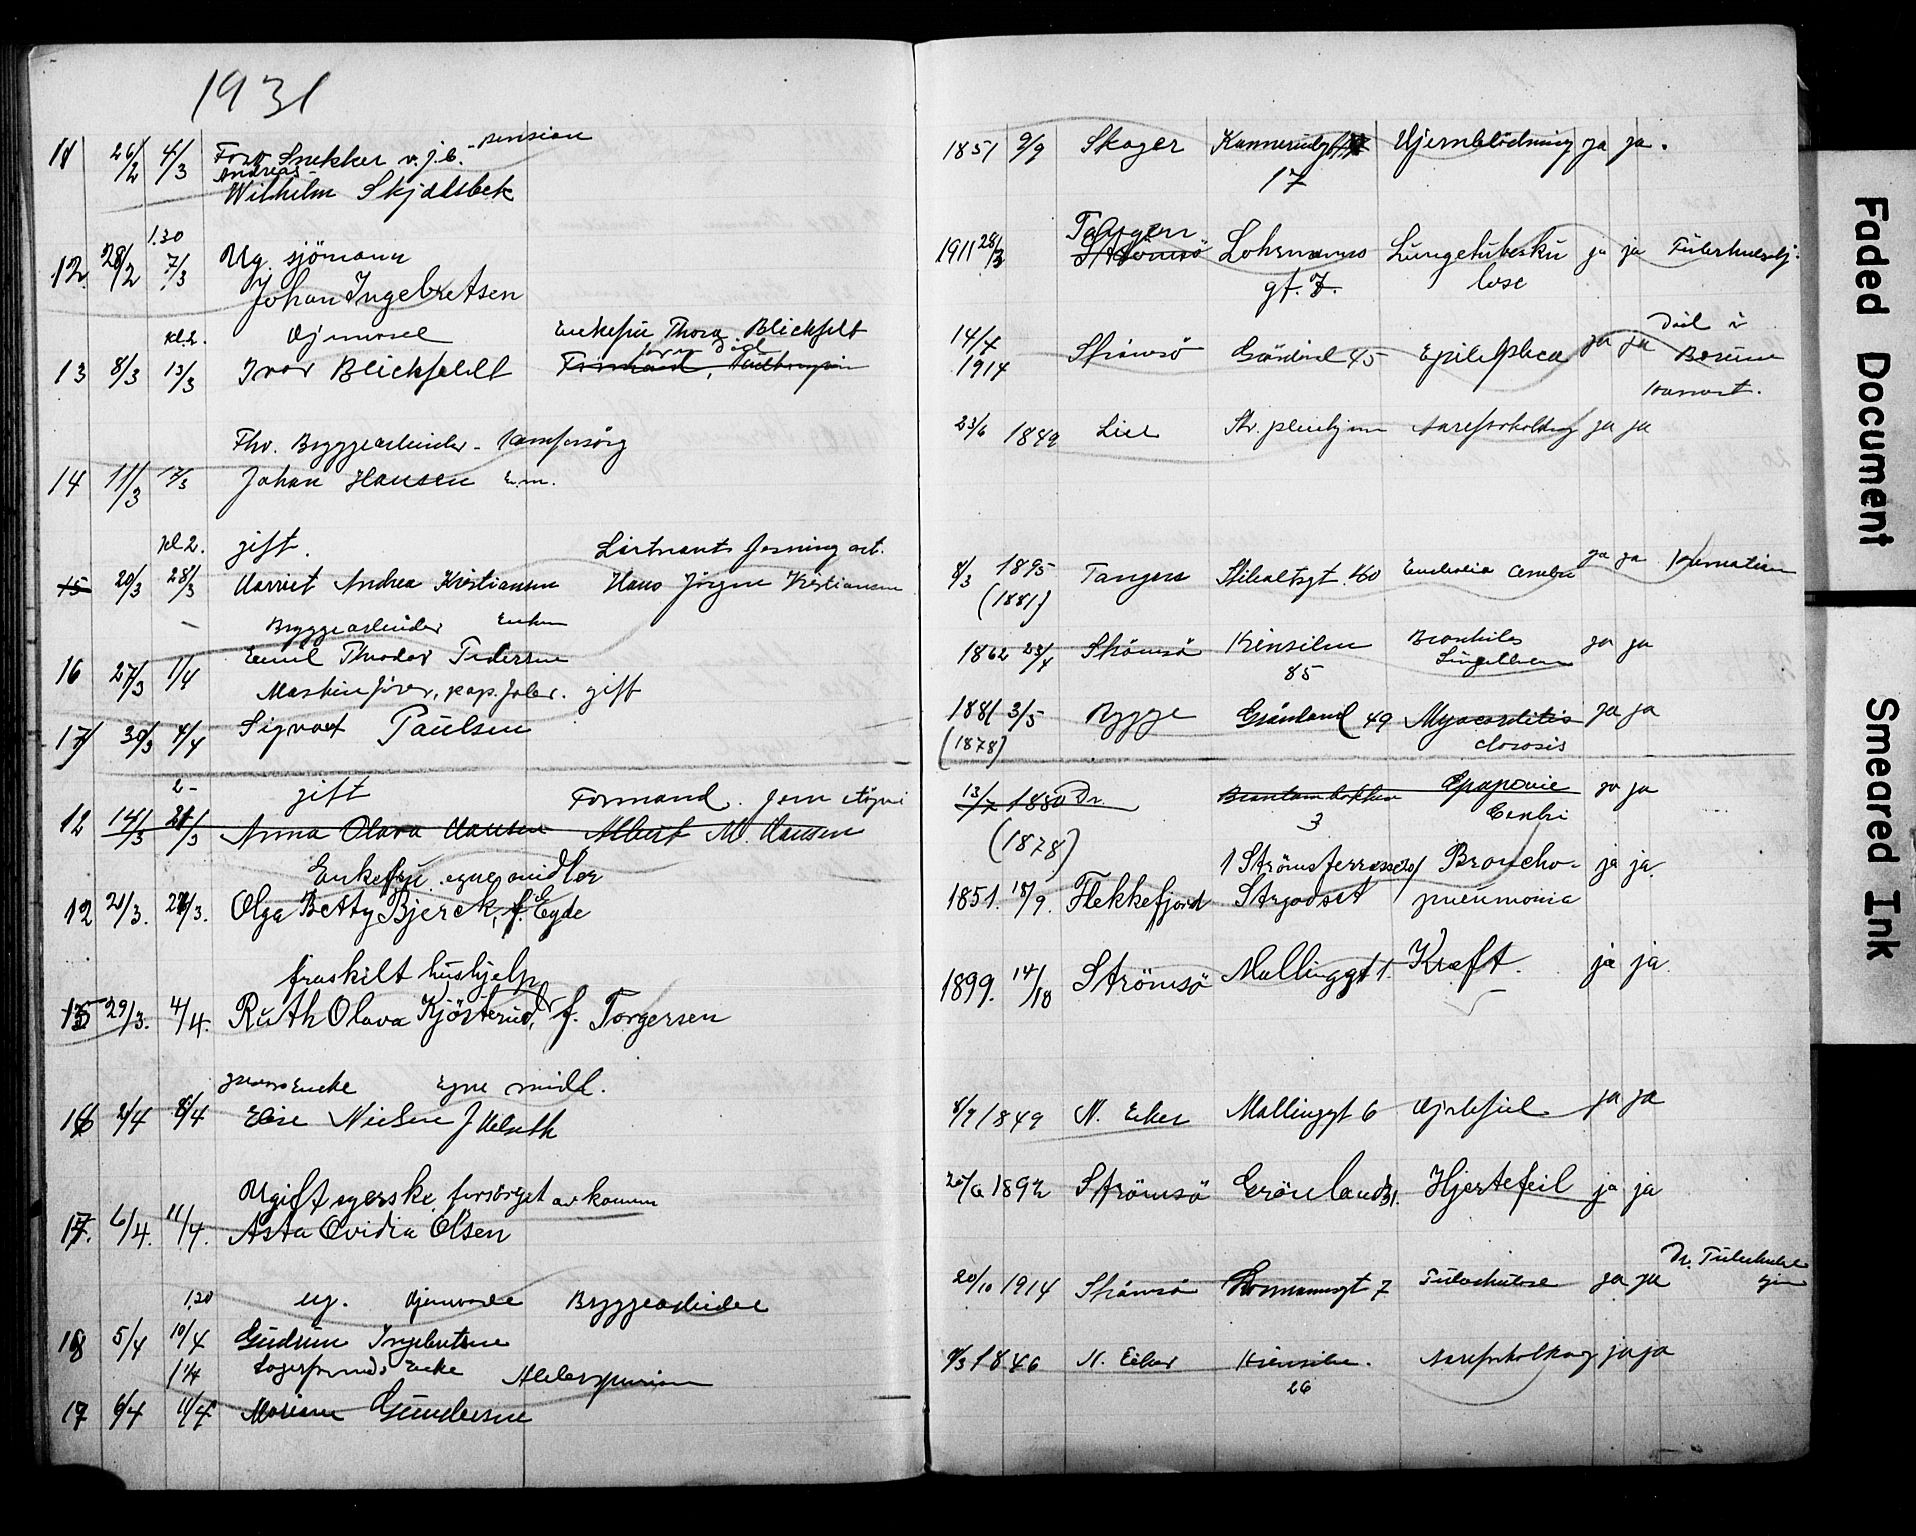 1931
11 26/2 4/3 Forv Snekker v. j.b. - pension
Andreas
Wilhelm Skjælsbek
1851 9/9 Skoger 17 Hjerneblödning ja ja.
12 28/2 1.30 7/3 Ug sjömann
Johan Ingebretsen
1911 28/3 Tangen Strömsö Lohrmanns gt. 7. Lungetuberkulose ja ja
13 8/3 kl 2. 13/3 Hjemvarende Enkefru Thora Blickfeldt
Ivar Blickfeldt
14/4 1914 Strömsö Grönland 45 Epilepsi ja ja Död i Bærum
14 11/3 17/3 Fhv. Bryggearbeider - komforsörg
Johan Hansen E.m.
23/6 1849 Lier Str. pleiehjem Aareforkalkning ja ja
15 20/3 kl 2. 28/3 gift.
Harriet Andrea Kristiansen Hans Jörgen Kristiansen
8/3 1895 (1881) Tangen 40 ja ja Kremation
Bryggearbeider Enkem
16 27/3 1/4 Emil Theodor Pedersen
1862 23/4 Strömsö 85 ja ja
Maskinfører, pap. faber. gift
17 30/3 4/4 Sigvart Paulsen
1881 3/5 Rygge Grönland 49 Myocarditis ja ja
(1878) clorosis
12 14/3 2- 21/3 gift Formand
Anna Olava Hansen Albert M. Hansen
13/2 1880 Dr. 3 ja ja
(1878)
12 21/3. 27/3. Enkefru egne midler
Olga Betty Bjerck, f. Eyde
1851. 18/9. Flekkefjord 1 Strömsterrasse Strgodset Broncho-pneumonia ja ja.
15 29/3. 4/4. fraskilt hushjelp
Ruth Olava Kjösterud, f. Torgersen
1899. 14/10 Strömsö Mallinggt 1. Kreft. ja ja.
16 2/4 8/4 Enke Egne midl.
Elise Nielsen f
8/9 1849 N. Eiker Mallinggt 6 Hjertefeil ja ja
17. 6/4. 11/4. Ugift syerske, forsörget av komm
Asta Ovidia Olsen
26/6 1892 Strömsö Grönland 31. Hjertefeil ja ja
1.30 ug. Hjemvarende Bryggearbeider
18 5/4 10/4 Gudrun Ingebretsen
20/10 1914 Strömsö Lormannsgt 7 Tuberkulose ja ja Dr. Tuberkulose hjem
17 6/4 11/4 Enke Alderspension
Mariane Gundersen
9/3 1846 N. Eiker 26 Aareforkalkning ja ja
Faded Document
Smeared Ink